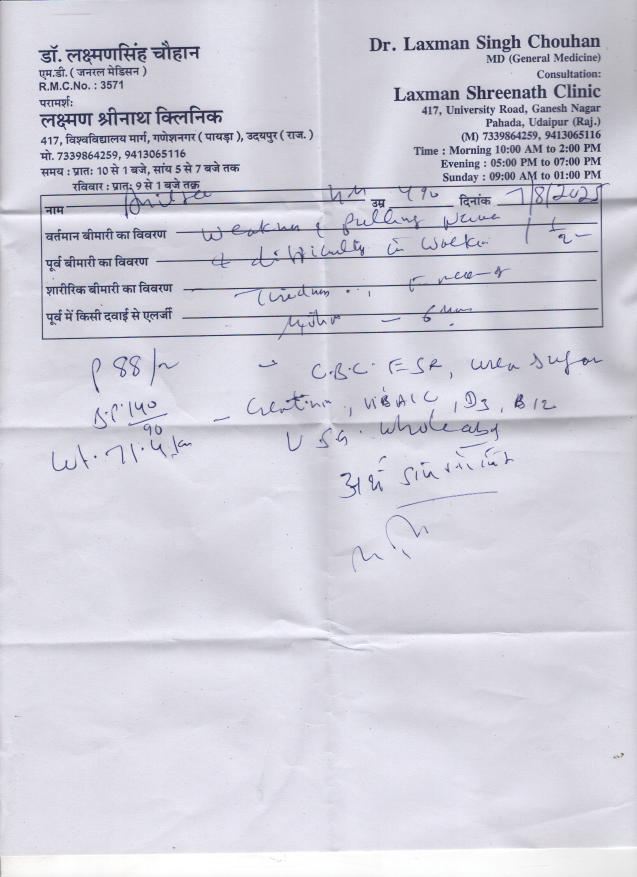 डॉ. लक्ष्मणसिंह चौहान
एम.डी. ( जनरल मेडिसन )
R.M.C.No. : 3571
परामर्श:
लक्ष्मण श्रीनाथ क्लिनिक
417, विश्वविद्यालय मार्ग, गणेशनगर ( पायड़ा ), उदयपुर ( राज. )
मो. 7339864259, 9413065116
समय : प्रात: 10 से 1 बजे, सांय 5 से 7 बजे तक
रविवार : प्रात: 9 से 1 बजे तक
Dr. Laxman Singh Chouhan
MD (General Medicine)
Consultation:
Laxman Shreenath Clinic
417, University Road, Ganesh Nagar
Pahada, Udaipur (Raj.)
(M) 7339864259, 9413065116
Time : Morning 10:00 AM to 2:00 PM
Evening : 05:00 PM to 07:00 PM
Sunday : 09:00 AM to 01:00 PM
नाम उम्र दिनांक 7/8/2025
वर्तमान बीमारी का विवरण Weakness & pulling
पूर्व बीमारी का विवरण & difficulty in
शारीरिक बीमारी का विवरण Tiredness
पूर्व में किसी दवाई से एलर्जी
P 88/m
B.P. 140/90
Wt. 71.4
C.B.C. ESR, urea sugar
Creatinine, HBA1C, D3, B12
USG. Whole abd